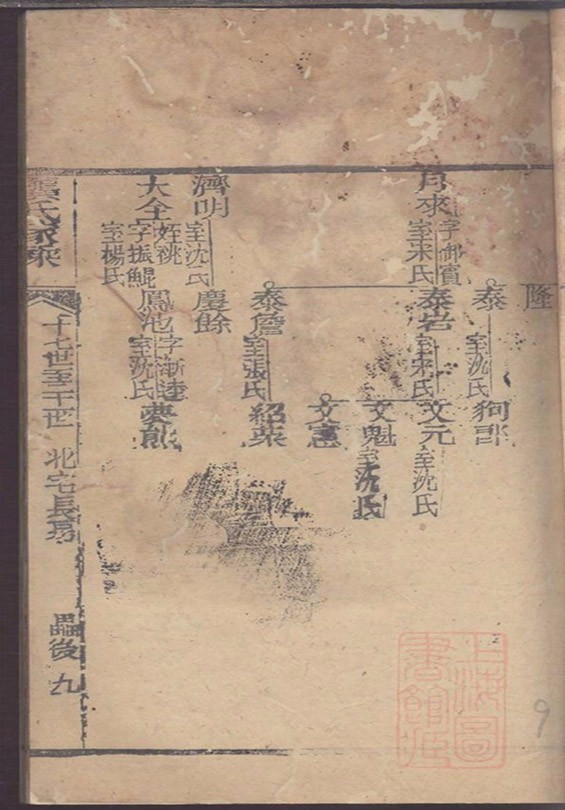 隆
泰
室沈氏
狗郎
月來
字御賓
室宋氏
泰岩
室宋氏
文元
室沈氏
文魁
室沈氏
文憲
泰詹
室張氏
紹葉
濟明
室沈氏
慶餘
大全
姪祧
字振鯤
室楊氏
鳳池
字漸逵
室沈氏
夢熊
龔氏家乘
十七世至二十世 北宅長房
後 九
上海圖書館藏
9